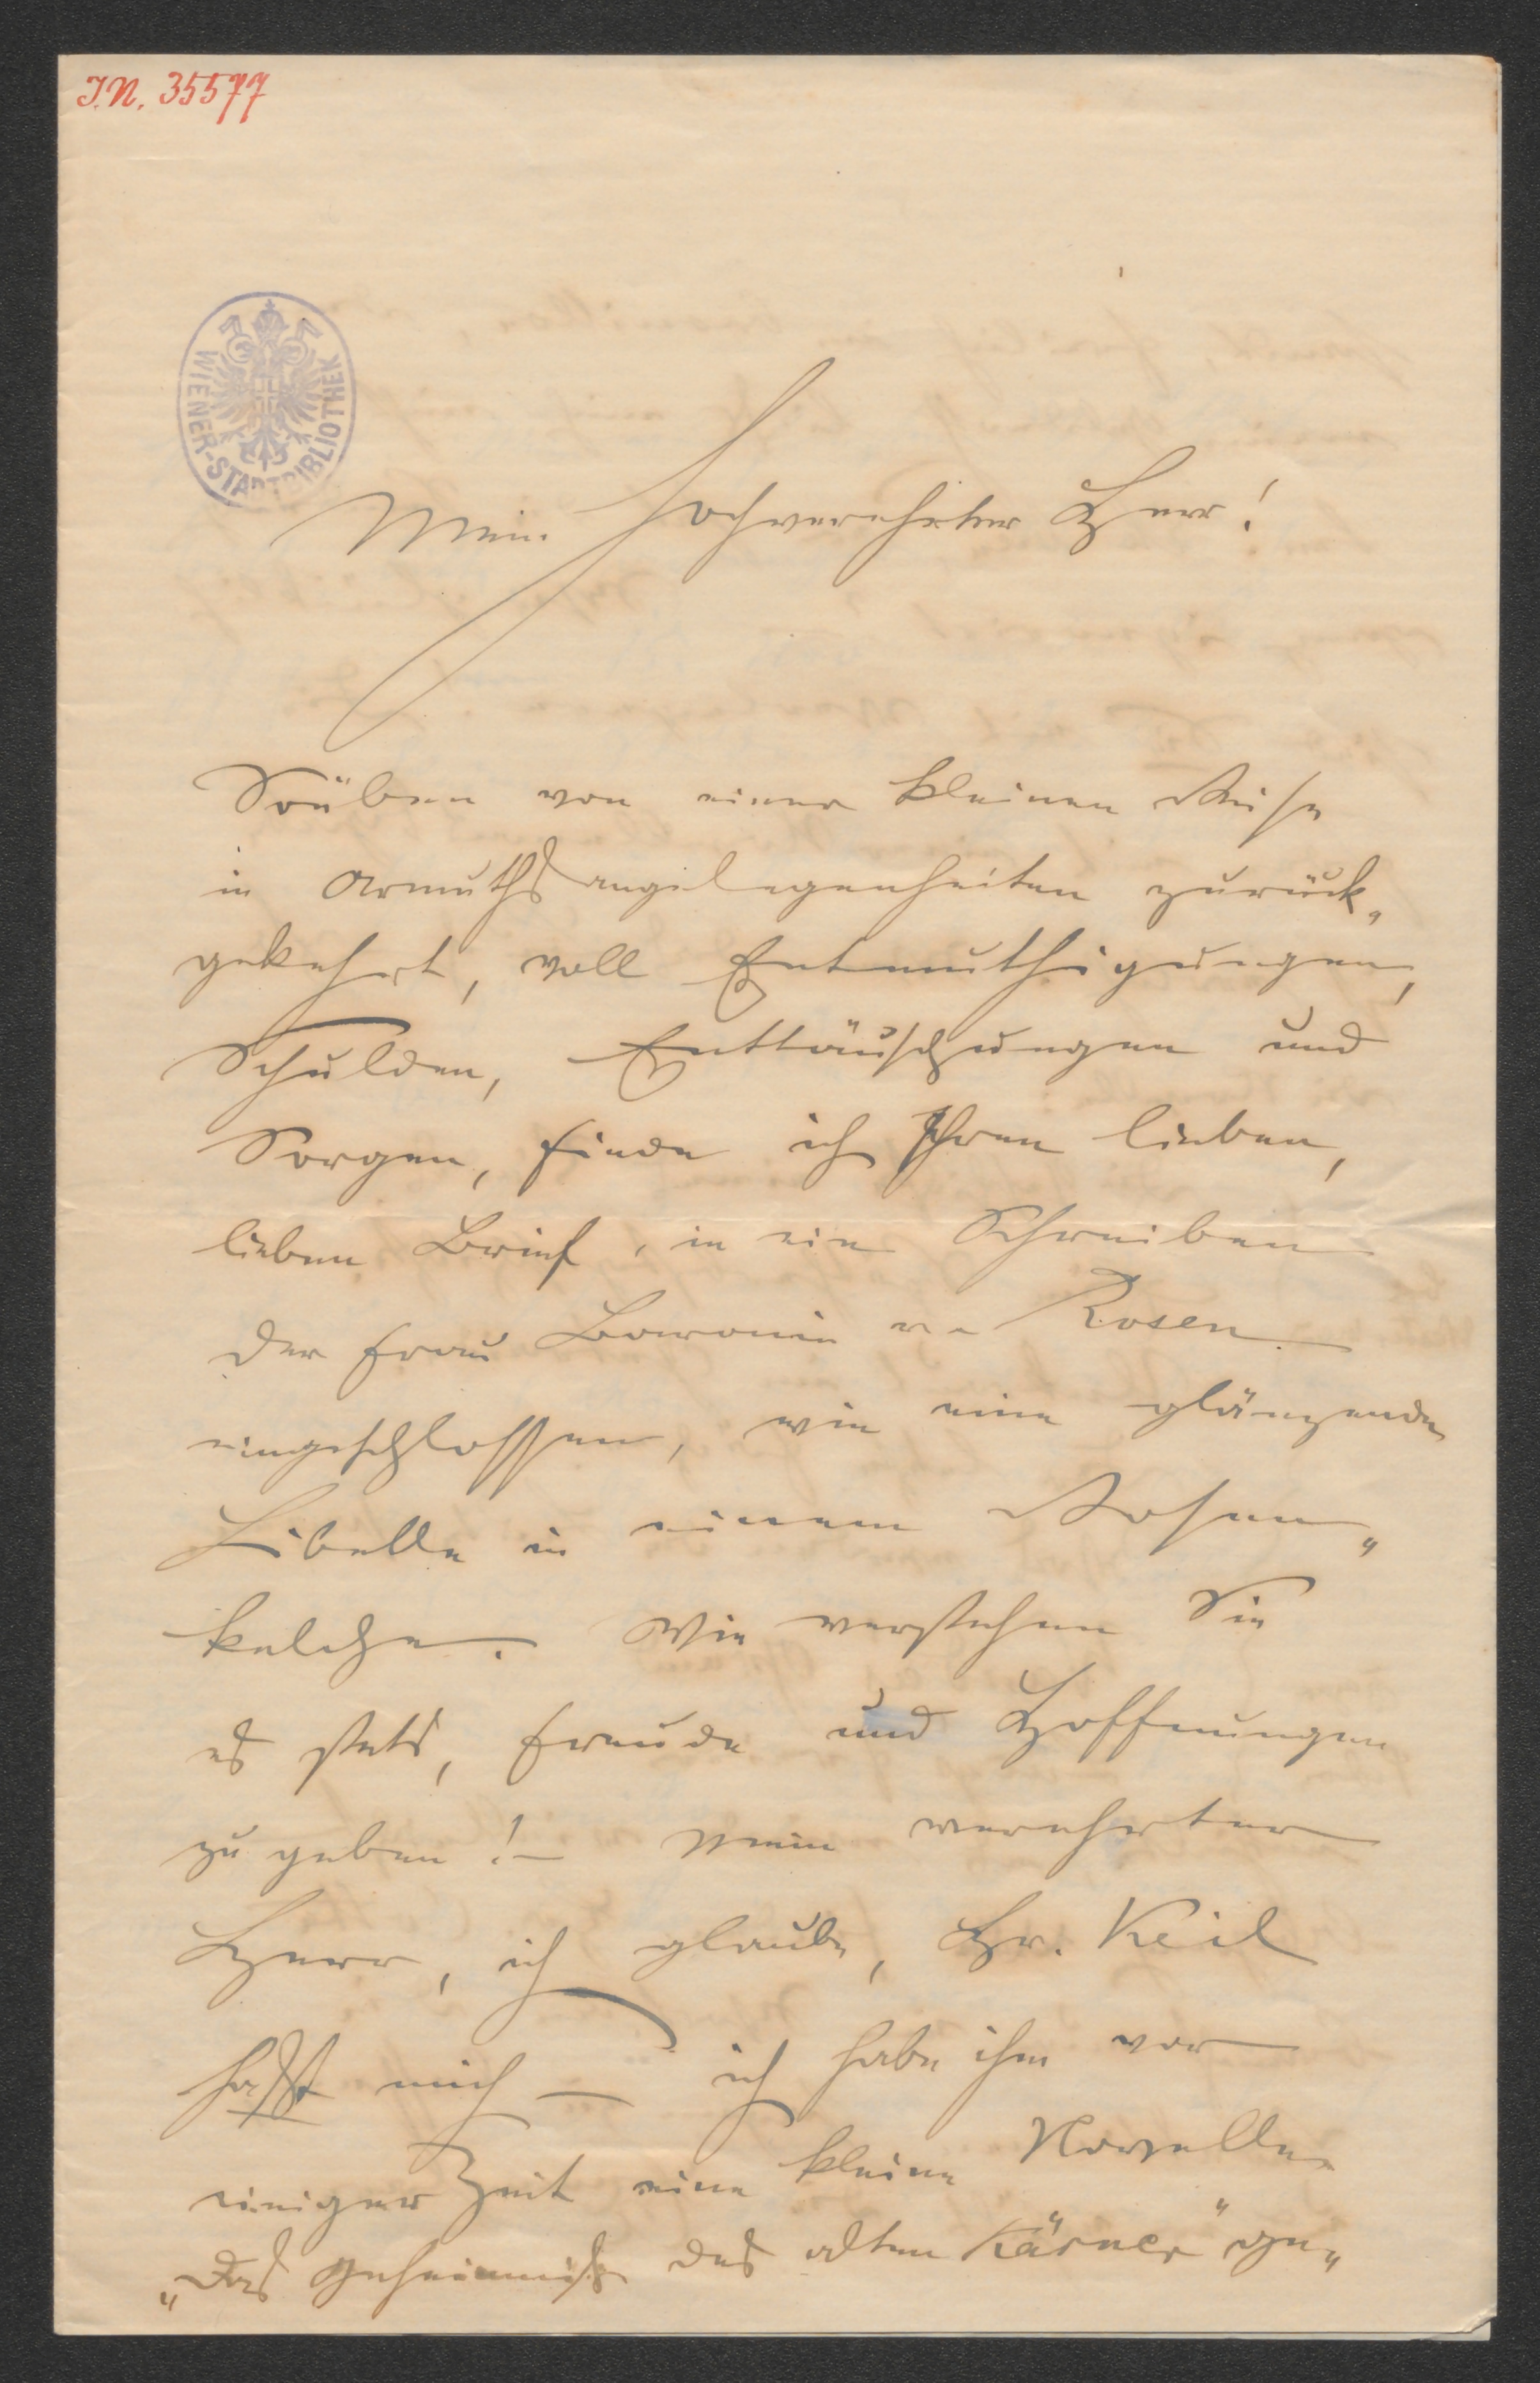 I.N. 35577
WIENER-STADTBIBLIOTHEK
Mein hochverehrter Herr!
Soeben von einer kleinen Reise
in Armuthsangelegenheiten zurück„
gekehrt, voll Entmuthigungen,
Schulden, Enttäuschungen und
Sorgen, finde ich Ihren lieben,
lieben Brief, in ein Schreiben
der Frau Baronin v. Rosen
eingeschlossen, wie eine glänzende
Libelle in einem Rosen„
kelche. Wie verstehen Sie
es stets, Freude und Hoffnungen
zu geben! – Mein verehrter
Herr, ich glaube, Hr. Keil
haßt mich – ich habe ihm vor
einiger Zeit eine kleine Novelle
„Das Geheimniß des alten Käsner" ge„